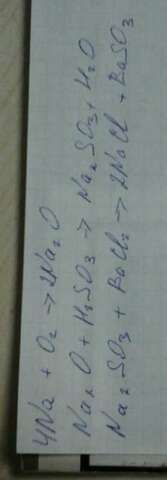 4Na + O₂ → 2Na₂O
Na₂O + H₂SO₃ → Na₂SO₃ + H₂O
Na₂SO₃ + BaCl₂ → 2NaCl + BaSO₃